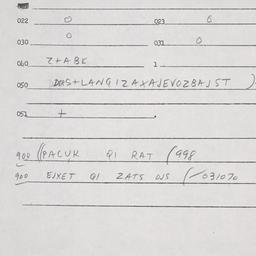 022 0 023 0
030 0 031 0
040 Z+ABE 1
050 DOS+LANGIZAXAJEVOZBAJST )
051 +
900 ((PACUK QI RAT (998
900 EJXET QI ZATS OJS (-031070